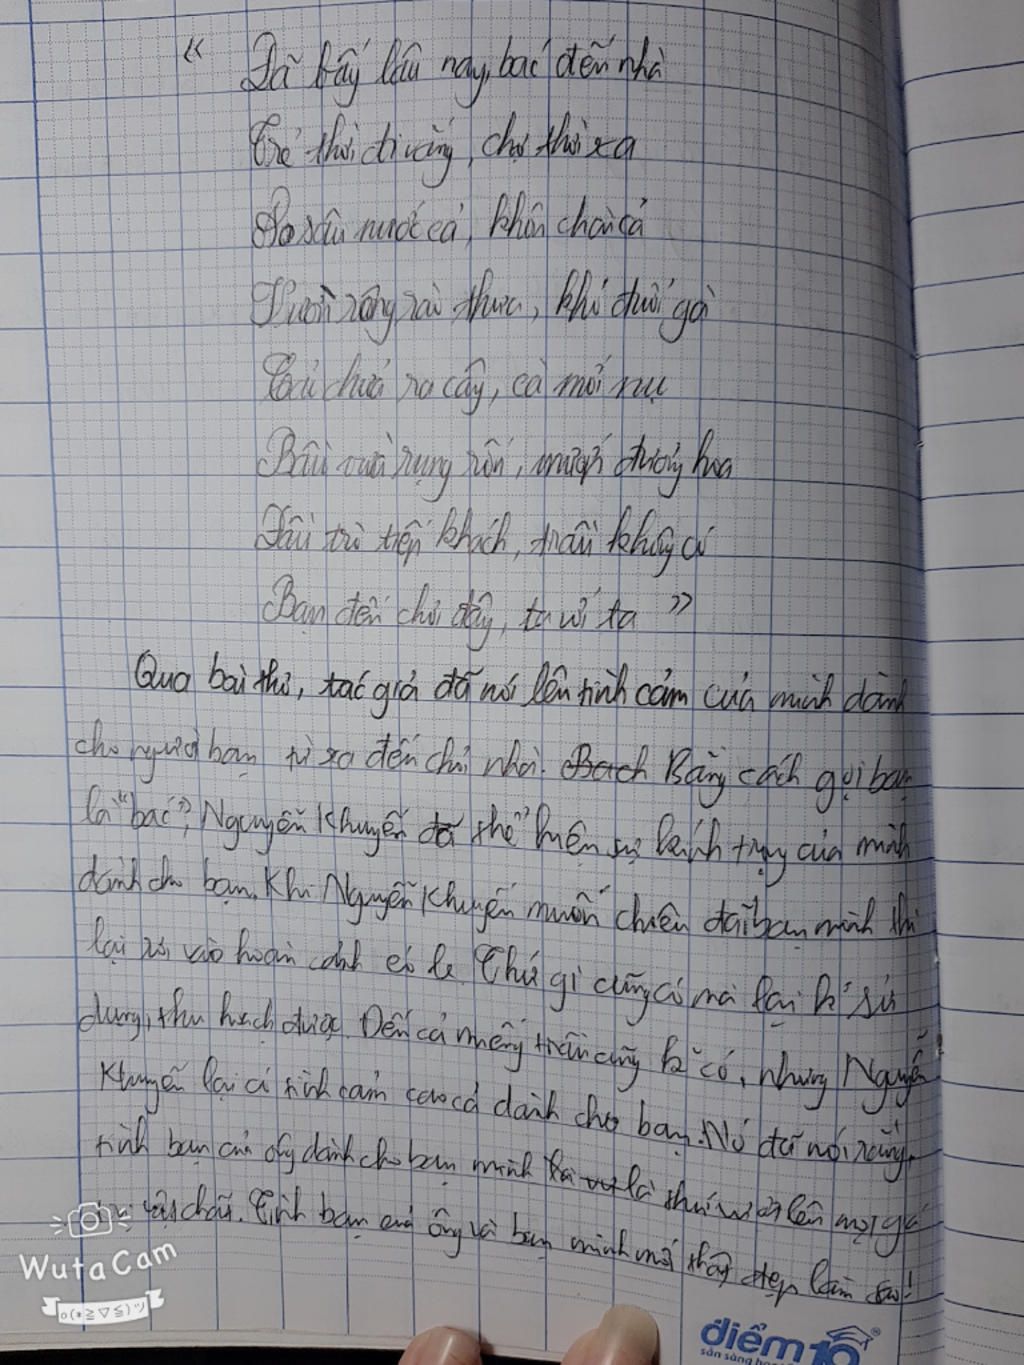 “ Đã bấy lâu nay, bác đến nhà
Trẻ thời đi vắng, chợ thời xa
Ao sâu nước cả, khôn chài cá
Vườn rộng rào thưa, khó đuổi gà
Cải chửa ra cây, cà mới nụ
Bầu vừa rụng rốn, mướp đương hoa
Đầu trò tiếp khách, trầu không có
Bạn đến chơi đây, ta với ta ”
Qua bài thơ, tác giả đã nói lên tình cảm của mình dành
cho người bạn từ xa đến chơi nhà. Bằng cách gọi bạn
là “bác”, Nguyễn Khuyến đã thể hiện sự kính trọng của mình
dành cho bạn. Khi Nguyễn Khuyến muốn chiêu đãi bạn mình thì
lại rơi vào hoàn cảnh éo le. Thứ gì cũng có mà lại k° sử
dụng, thu hoạch được. Đến cả miếng trầu cũng k° có, nhưng Nguyễn
Khuyến lại có tình cảm cao cả dành cho bạn. Nó đã nói rằng,
tình bạn của ông dành cho bạn mình là thứ vượt lên mọi giá
vật chất. Tình bạn của ông và bạn mình mới thấy đẹp làm sao!
WutaCam
o(*≧▽≦)ツ
điểm 10